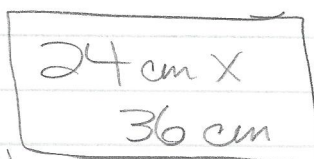 24 cm X
36 cm